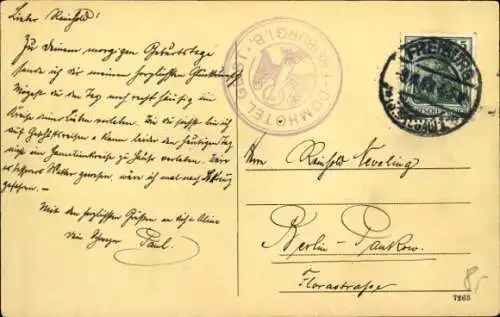 Lieber Reinhold!
Zu Deinem morgigen Geburtstage
sende ich Dir meinen herzlichsten Glückwunsch.
Mögest du den Tag noch recht häufig im
Kreise Deiner Lieben verleben. Du
auf Geschäftsreisen & kann leider den heutigen Tag
nicht im Familienkreise zu Hause verleben.
besseres Wetter gewesen, wäre ich mal nach
gefahren. —
Mit den herzlichsten Grüßen an Dich &
Dein Schwager Paul.
DOMHOTEL FREIBURG I.B.
FREIBURG
5
Herrn Reinhold Neveling
Berlin-Pankow.
Florastrasse
8,-
7263